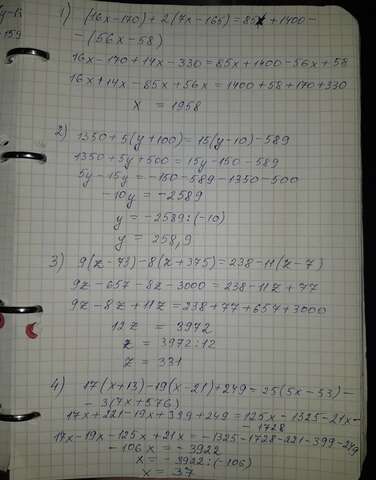 1) (16x-170)+2(7x-165)=85x+1400-
-(56x-58)
16x-170+14x-330=85x+1400-56x+58
16x+14x-85x+56x=1400+58+170+330
x = 1958
2) 1350+5(y+100)=15(y-10)-589
1350+5y+500=15y-150-589
5y-15y=-150-589-1350-500
-10y=-2589
y=-2589:(-10)
y=258,9
3) 9(z-73)-8(z+375)=238-11(z-7)
9z-657-8z-3000=238-11z+77
9z-8z+11z=238+77+657+3000
12z = 3972
z = 3972:12
z = 331
4) 17(x+13)-19(x-21)+249=25(5x-53)-
-3(7x+576)
17x+221-19x+399+249=125x-1325-21x-
-1728
17x-19x-125x+21x=-1325-1728-221-399-249
-106x=-3922
x=-3922:(-106)
x=37